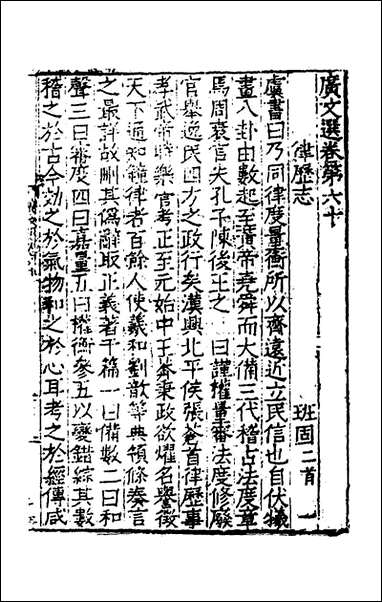 廣文選卷第六十
律歷志
班固二首
虞書曰乃同律度量衡所以齊遠近立民信也自伏犧
畫八卦由數起至黃帝堯舜而大備三代稽古法度章
馬周衰官失孔子陳後王之曰謹權量審法度修廢
官舉逸民四方之政行矣漢興北平侯張蒼首律歷事
孝武帝時樂官考正至元始中王莽秉政欲燿名譽徵
天下通知鐘律者百餘人使羲和劉歆等典領條奏言
之最詳故刪其偽辭取正義著于篇一曰備數二曰和
聲三曰審度四曰嘉量五曰權衡參五以變錯綜其數
稽之於古今効之於氣物和之於心耳考之於經傳咸